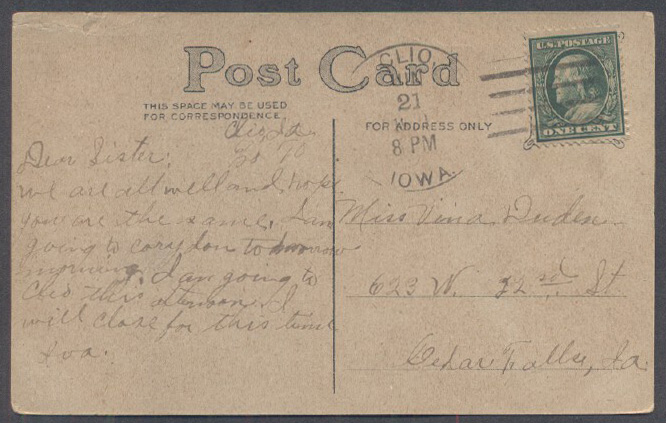 Post Card
THIS SPACE MAY BE USED
FOR CORRESPONDENCE
FOR ADDRESS ONLY
CLIO,
21
8 PM
IOWA.
U.S. POSTAGE
ONE CENT
Clio Ia.
Dear Sister;
we are all well and hope
you are the same. I am
going to corydon tomorrow
morning. I an going to
Clio this afternoon. I
will close for this time
Iva.
Miss Vina
623 W. 22nd. St
Cedar Falls, Ia.